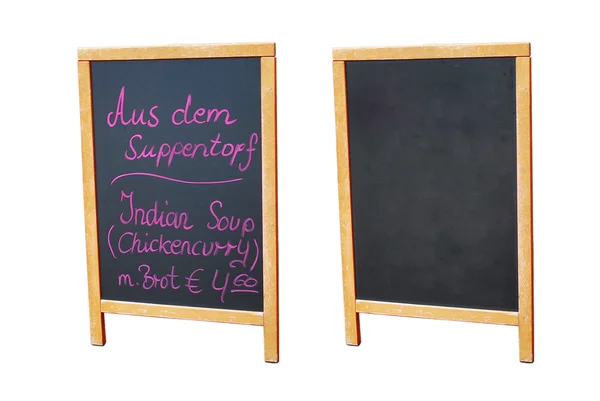 Aus dem
Suppentorf
Indian Soup
(Chickencurry)
m. Brot € 4,60